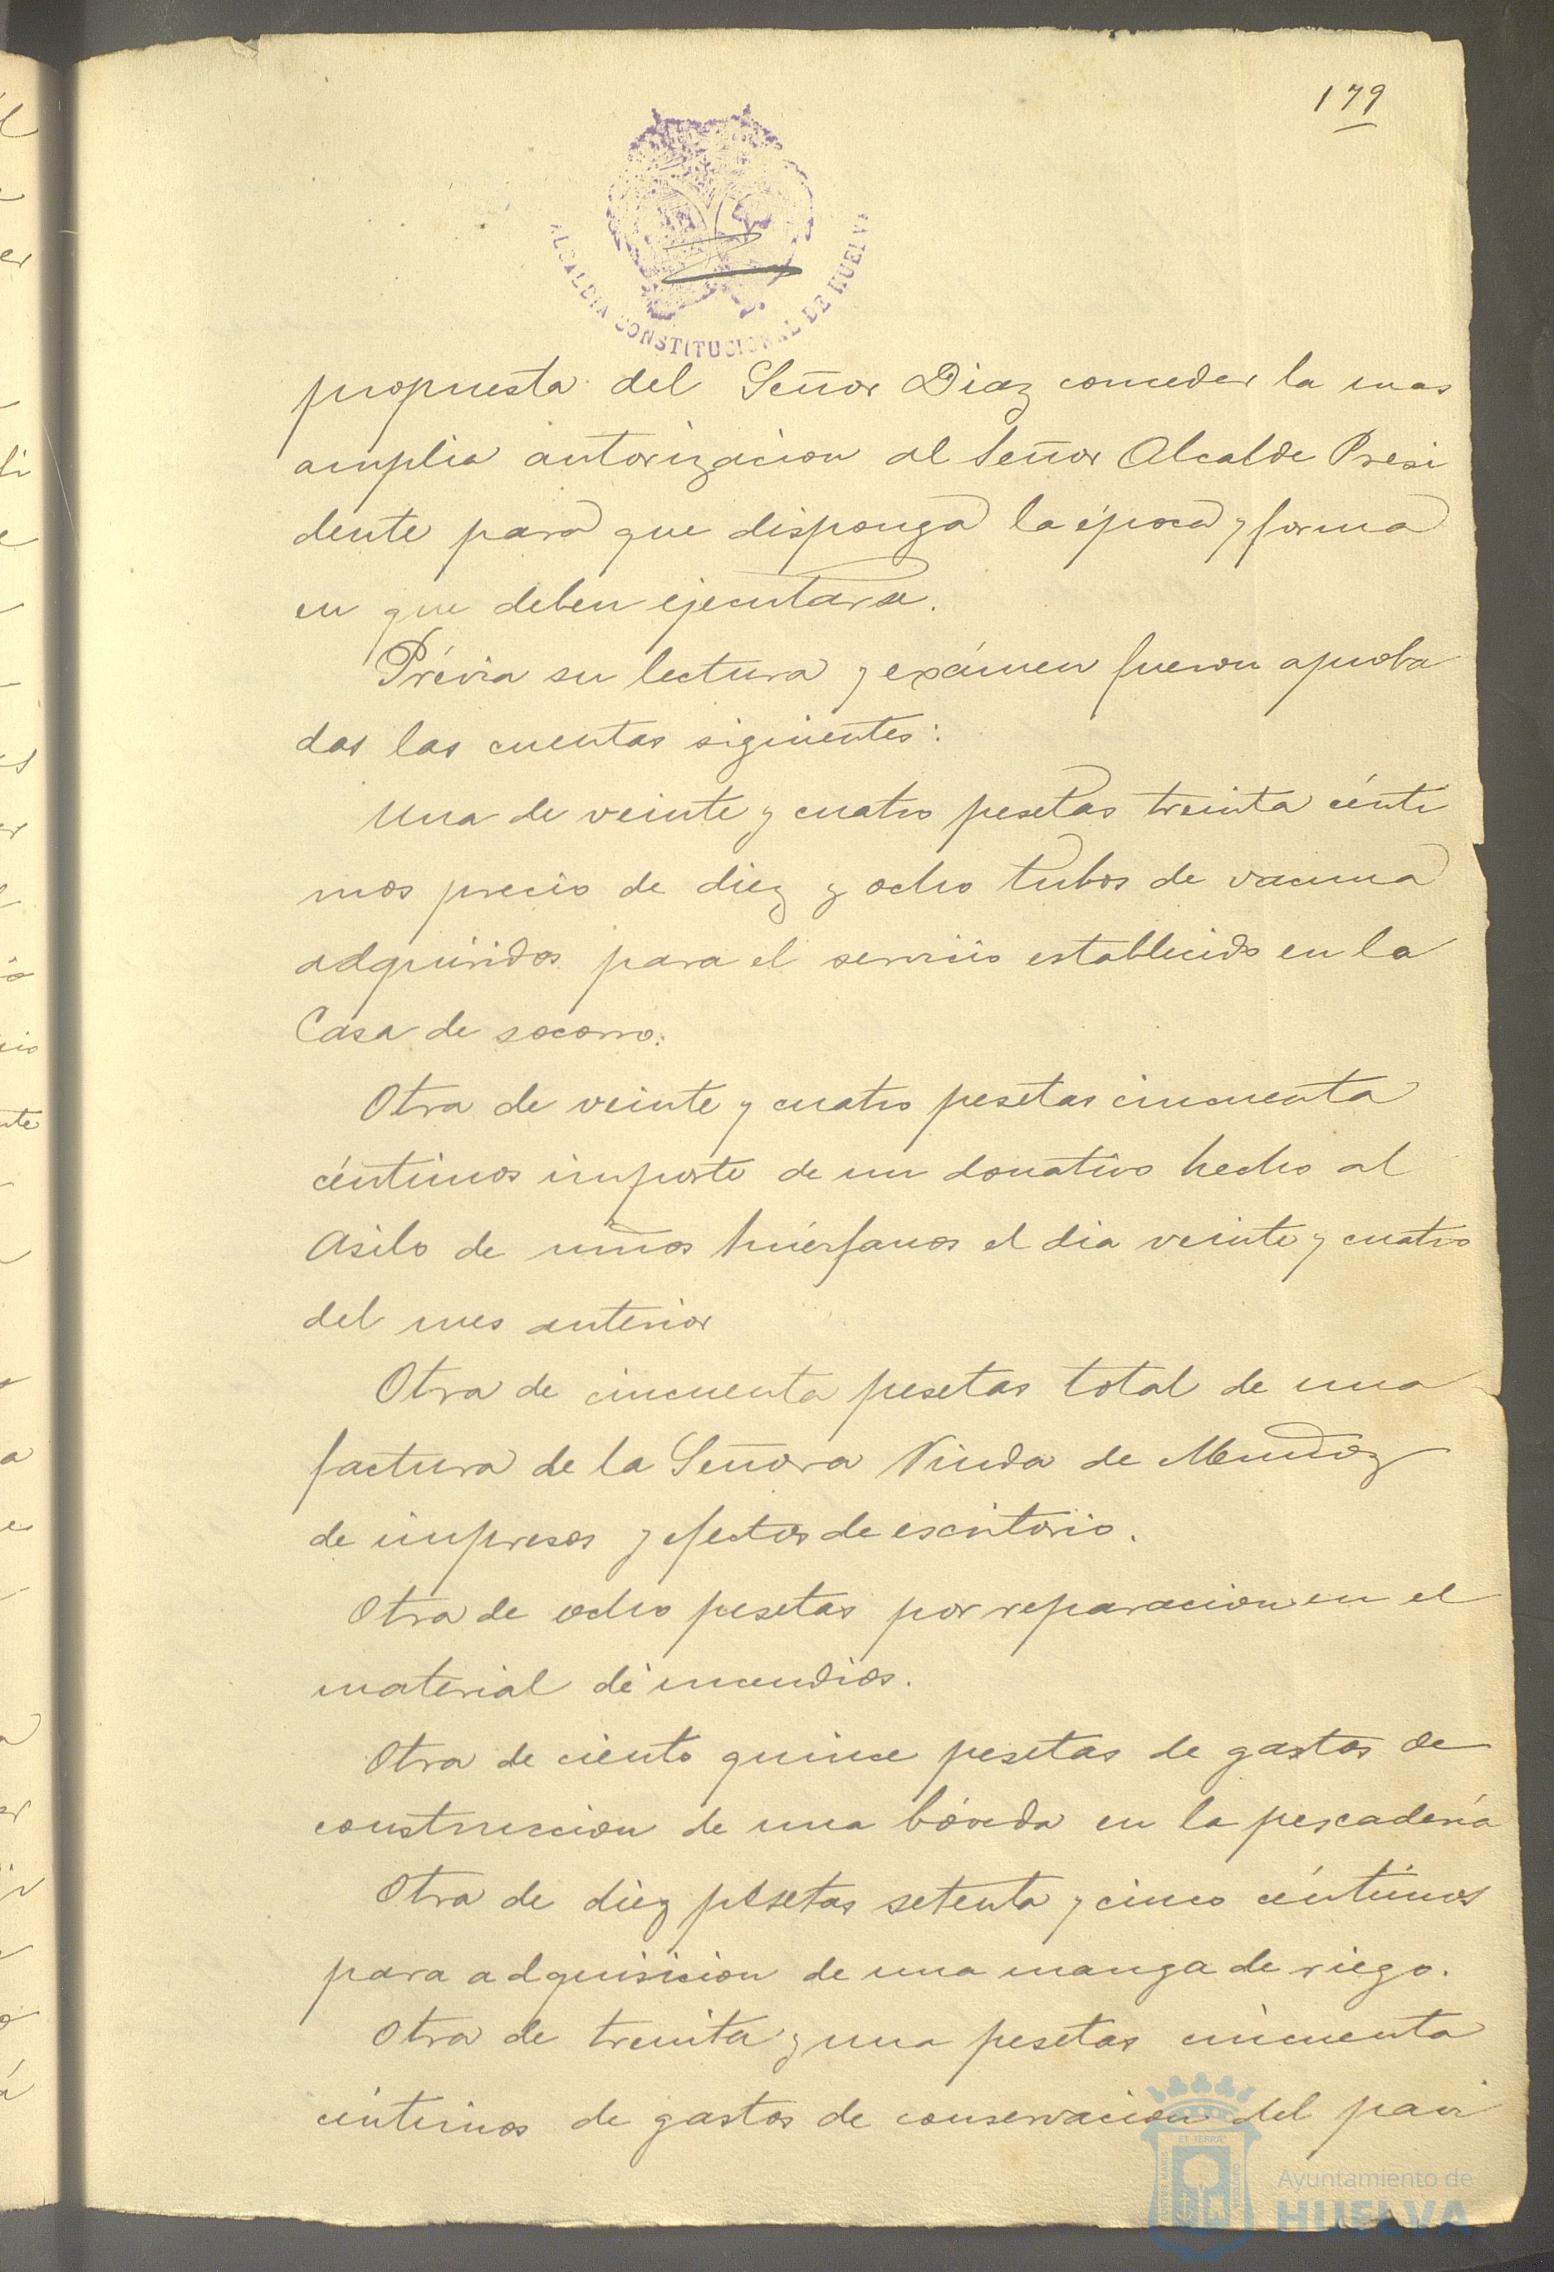 179
ALCALDIA CONSTITUCIONAL DE HUELVA
propuesta del Señor Diaz conceder la mas
amplia autorizacion al Señor Alcalde Presi
dente para que disponga la época y forma
en que deben ejecutarse.
Prévia su lectura y exámen fueron aproba
das las cuentas siguientes:
Una de veinte y cuatro pesetas treinta cénti
mos precio de diez y ocho tubos de vacuna
adquiridos para el servicio establecido en la
Casa de socorro.
Otra de veinte y cuatro pesetas cincuenta
céntimos importe de un donativo hecho al
Asilo de niños huérfanos el dia veinte y cuatro
del mes anterior
Otra de cincuenta pesetas total de una
factura de la Señora Viuda de Muñoz
de impresos y efectos de escritorio.
Otra de ocho pesetas por reparacion en el
material de incendios.
Otra de ciento quince pesetas de gastos de
construccion de una bóveda en la pescadería
Otra de diez pesetas setenta y cinco céntimos
para adquisicion de una manga de riego.
Otra de treinta y una pesetas cincuenta
céntimos de gastos de conservacion del pavi
Ayuntamiento de
HUELVA